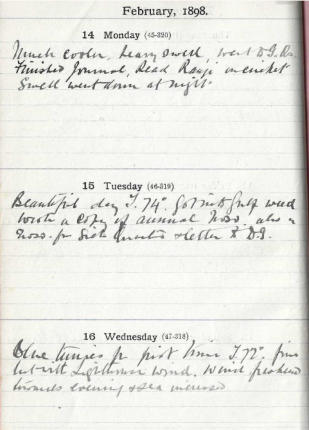 February, 1898.
14 Monday (45-320)
Much cooler, heavy swell, went D.G.
Finished Journal, Read Ranji on cricket
Swell went down at night.
15 Tuesday (46-319)
Beautiful day T. 74° Got into Gulf weed
wrote a copy of annual also
for Sick & letter to D.G.
16 Wednesday (47-318)
Blue tunics for first time T. 72° fine
but with wind, wind freshened
towards evening & sea increased